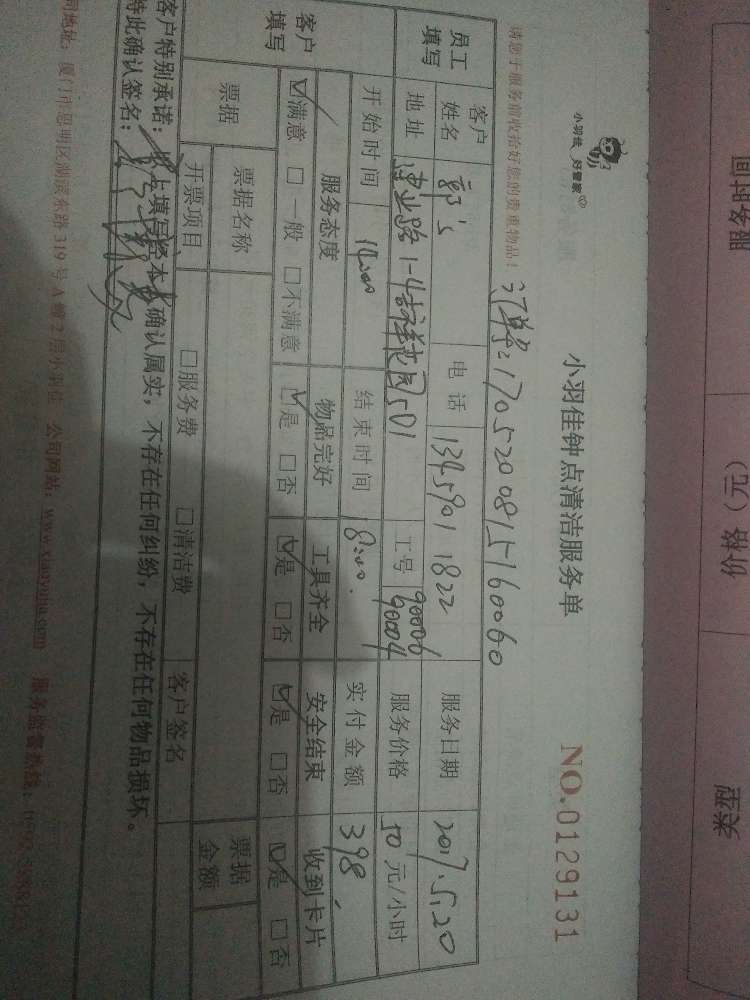 服务时间 价格（元） 类型
小羽佳 好管家
小羽佳钟点清洁服务单
NO.0129131
请您于服务前收拾好您的贵重物品！
订单号：1705200815160060
员工填写 客户姓名 郭's 电话 13459011822 服务日期 2017.5.20
地址 1-4 501 工号 90006 90004 服务价格 50元/小时
客户填写 开始时间 14:00 结束时间 8:00. 实付金额 398
服务态度 物品完好 工具齐全 安全结束 收到卡片
☑满意 □一般 □不满意 ☑是 □否 ☑是 □否 ☑是 □否 ☑是 □否
票据 票据名称 票据金额
开票项目 □服务费 □清洁费 客户签名
客户特别承诺：以上填写经本人确认属实，不存在任何纠纷，不存在任何物品损坏。
特此确认签名：
司地址：厦门市思明区湖滨东路319号A幢2层 公司网站：www.xiaoyujia.com 服务监督热线：